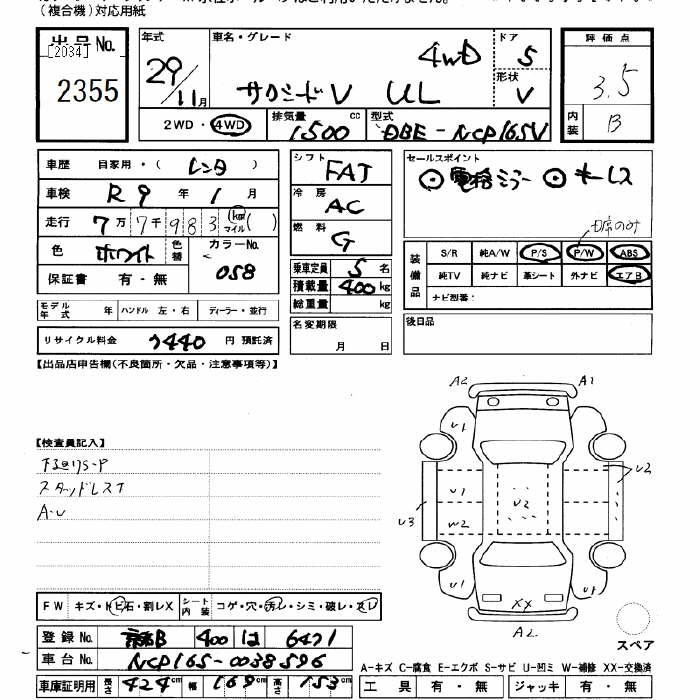 (複合機)対応用紙
出品No.
[2034]
2355
年式
29/11月
車名・グレード
4WD
サクシードV UL
ドア
5
形状
V
2WD・4WD
排気量
1500 cc
型式
DBE-NCP165V
評価点
3.5
内装
B
車歴 自家用・( レンタ )
車検 R9 年 1 月
走行 7万 7千 983 (km マイル)( )
色 ホワイト 色替 カラーNo. 058
保証書 有・無
モデル年式 年 ハンドル 左・右 ディーラー・並行
リサイクル料金 7440 円 預託済
シフト FAT
冷房 AC
燃料 G
乗車定員 5 名
積載量 400 kg
総重量 kg
名変期限 月 日
セールスポイント
◎電格ミラー ◎キーレス
D席のみ
装備品
S/R 純A/W P/S P/W ABS
純TV 純ナビ 革シート 外ナビ エアB
ナビ型番:
後日品
【出品店申告欄(不良箇所・欠品・注意事項等)】
【検査員記入】
下回りS・P
スタッドレスT
A・U
A2 A1
U1
U2
U1 U2
U3 W2
U1 U1
XX
A2
スペア
FW キズ・トビ石・割レX シート内装 コゲ・穴・汚レ・シミ・破レ・スレ
登録No. 400 は 6471
車台No. NCP165-0038596
車庫証明用 長さ 424cm 幅 169cm 高さ 153cm
A-キズ C-腐食 E-エクボ S-サビ U-凹ミ W-補修 XX-交換済
工具 有・無 ジャッキ 有・無